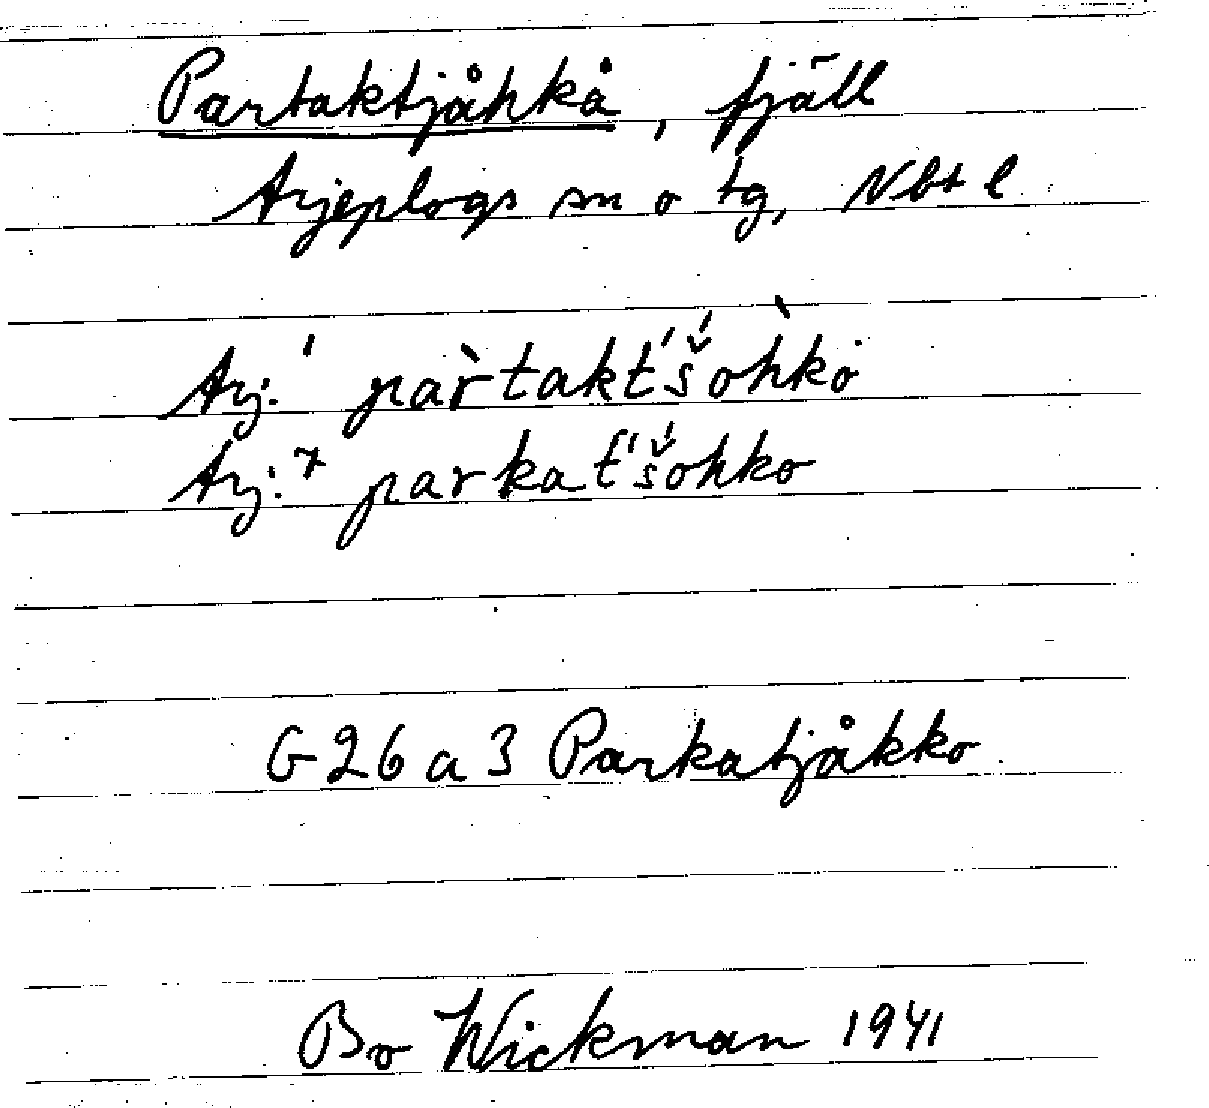 Partaktjåhkå, fjäll
Arjeplogs sn o tg, Nbt l
Arj.¹ pàr̀taḱt́š́ohk̀o
Arj.⁷ parkat́š́ohko
G 26 a 3 Parkatjåkko
Bo Wickman 1941